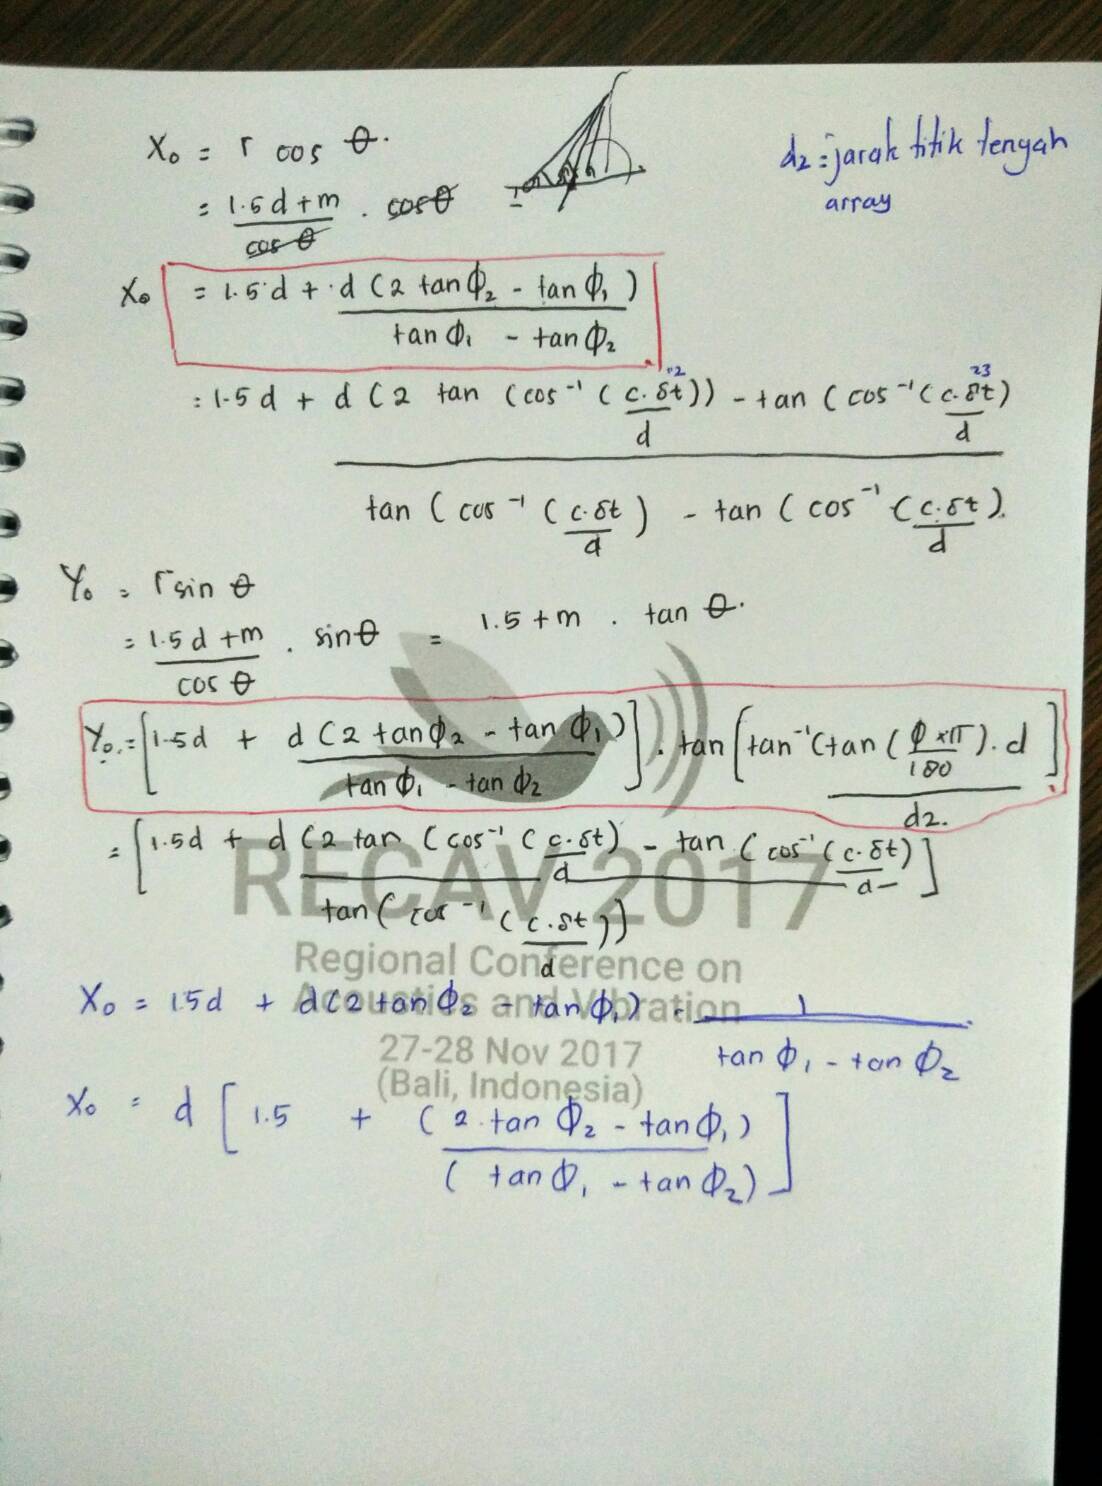 X₀ = r cos θ.
= 1.5d+m / cos θ . cos θ
d2 = jarak titik tengah
array
X₀ = 1.5d + d (2 tan ϕ₂ - tan ϕ₁) / tan ϕ₁ - tan ϕ₂
= 1.5 d + d (2 tan (cos⁻¹ (c.δt/d)) - tan (cos⁻¹ (c.δt/d) 23
tan (cos⁻¹ (c.δt/d) - tan (cos⁻¹ (c.δt/d).
Y₀ = r sin θ
= 1.5d+m / cos θ . sin θ = 1.5+m . tan θ.
Y₀ = [1.5d + d (2 tan ϕ₂ - tan ϕ₁) / tan ϕ₁ - tan ϕ₂] . tan [tan⁻¹(tan (ϕ×π/180).d / d2.]
= [1.5d + d (2 tan (cos⁻¹ (c.δt/d) - tan (cos⁻¹ (c.δt/d)]
tan (cos⁻¹ (c.δt/d))
RECAV 2017
Regional Conference on
Acoustics and Vibration
27-28 Nov 2017
(Bali, Indonesia)
X₀ = 1.5d + d(2 tan ϕ₂ - tan ϕ₁) . 1 / tan ϕ₁ - tan ϕ₂
X₀ = d [1.5 + (2 . tan ϕ₂ - tan ϕ₁) / (tan ϕ₁ - tan ϕ₂)]